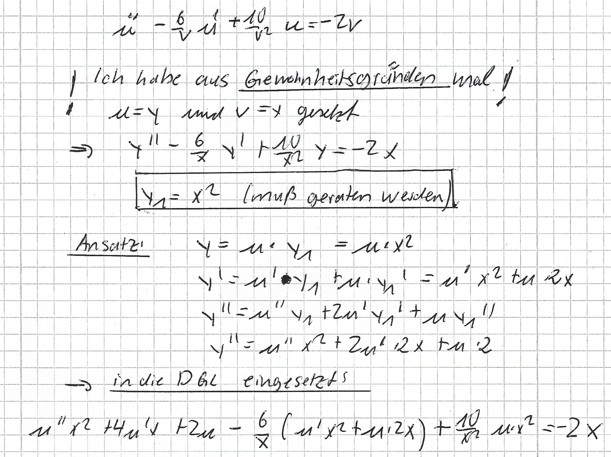 u'' - 6/v u' + 10/v² u = -2v
! Ich habe aus Gewohnheitsgründen mal !
u=y und v=x gesetzt
⇒ y'' - 6/x y' + 10/x² y = -2x
y₁ = x² (muß geraten werden)
Ansatz: y = u · y₁ = u · x²
y' = u' · y₁ + u · y₁' = u' x² + u · 2x
y'' = u'' y₁ + 2u' y₁' + u y₁''
y'' = u'' x² + 2u' · 2x + u · 2
→ in die DGL eingesetzt:
u'' x² + 4u'x + 2u - 6/x (u' x² + u · 2x) + 10/x² u · x² = -2x